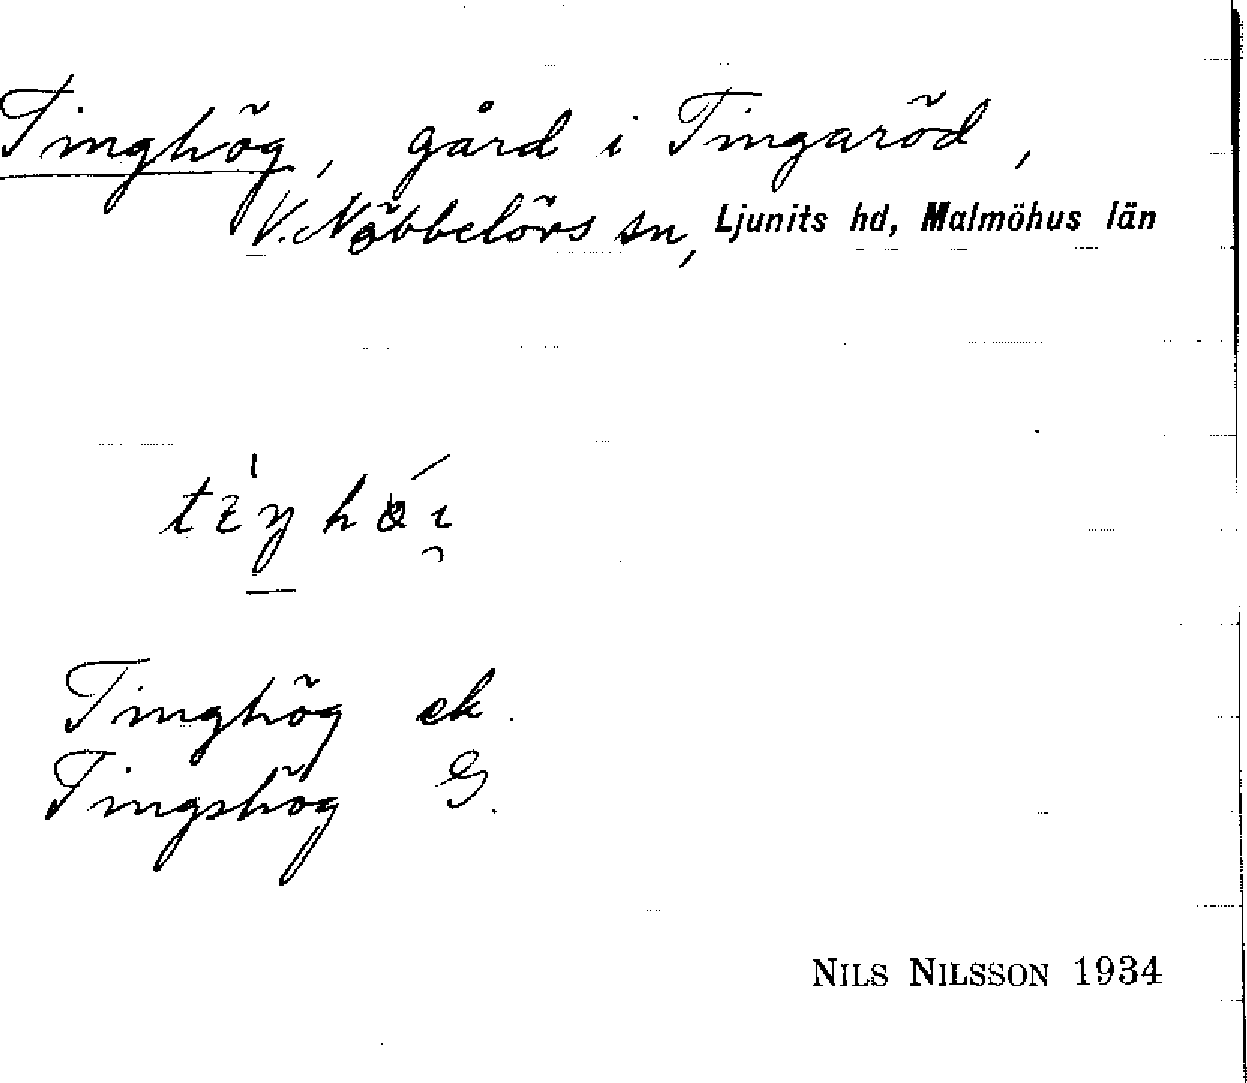 Tinghög, gård i Tingaröd,
V. Nöbbelövs sn, Ljunits hd, Malmöhus län
Tinghög ek.
Tingshög G.
NILS NILSSON 1934